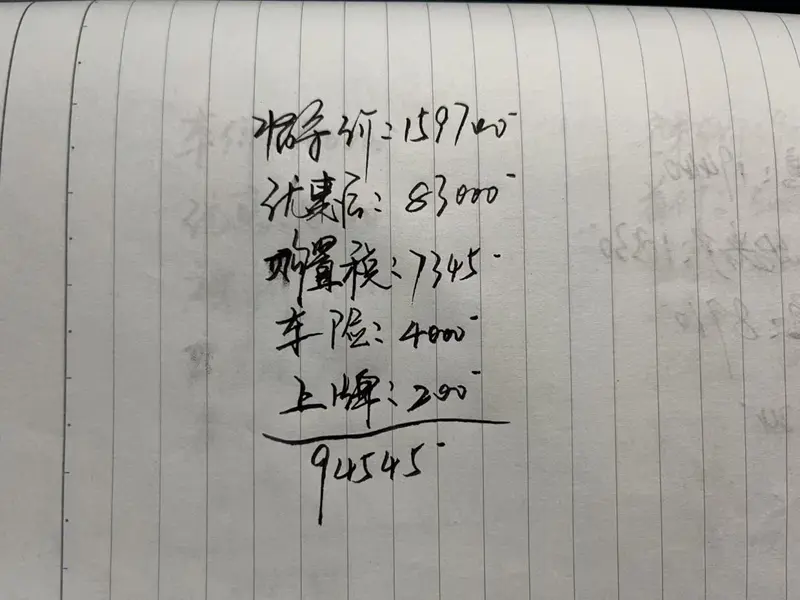 指导价:159700
优惠后:83000
购置税:7345
车险:4000
上牌:200
94545